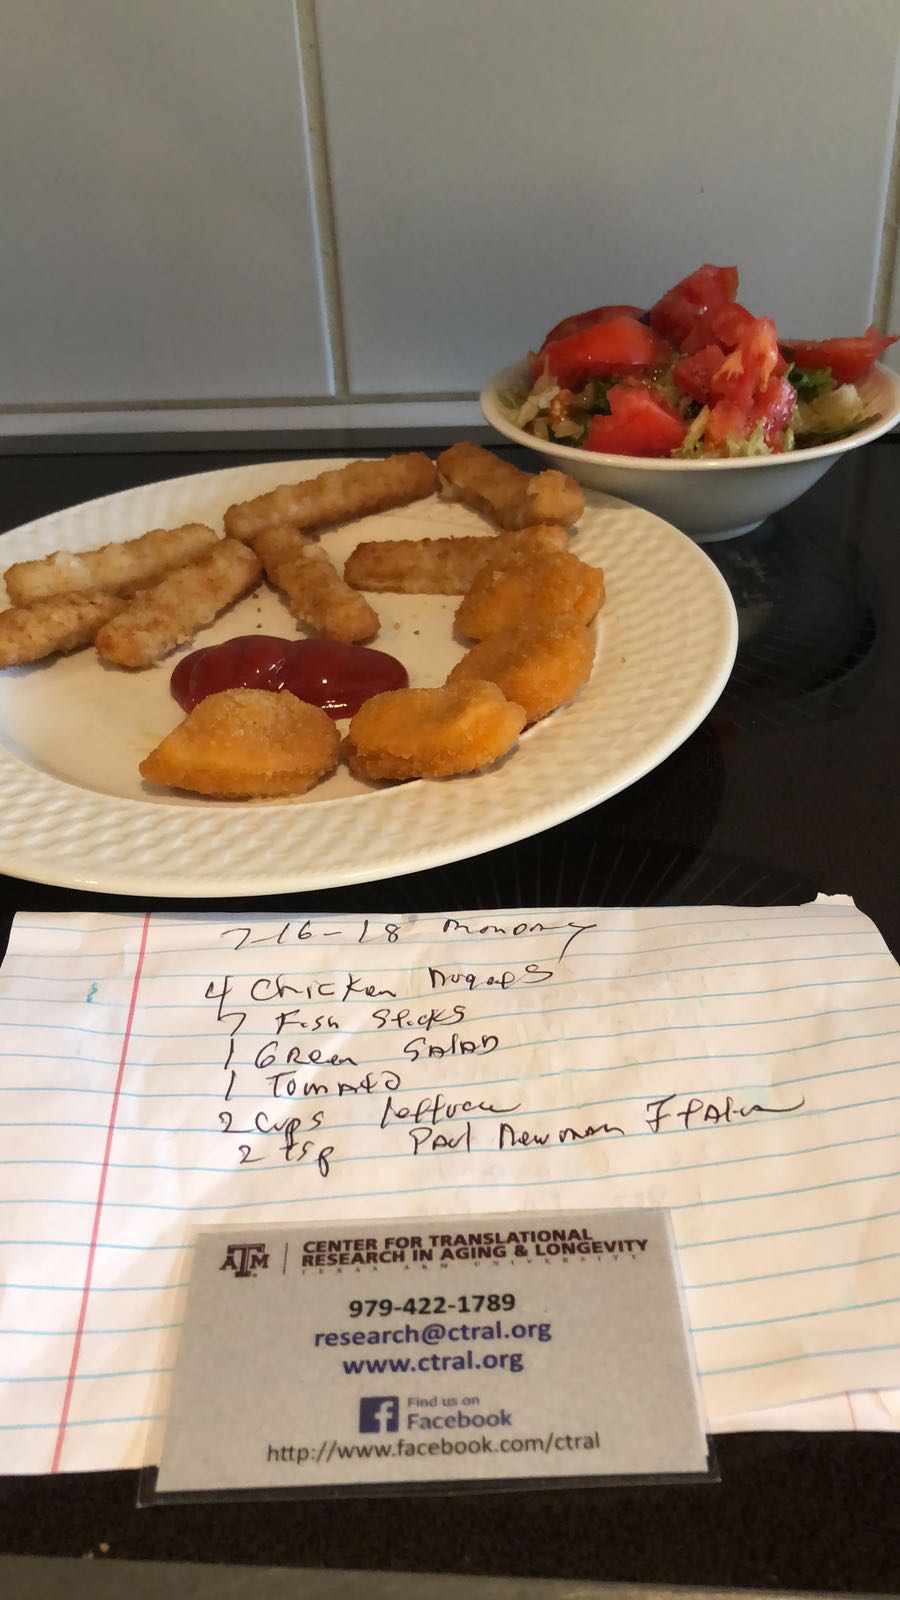 7-16-18 Monday
4 Chicken Nugets
7 Fish Sticks
1 Green SALAD
1 Tomato
2 Cups lettuce
2 tsp Paul Newman Italian
ATM CENTER FOR TRANSLATIONAL
RESEARCH IN AGING & LONGEVITY
TEXAS A&M UNIVERSITY
979-422-1789
research@ctral.org
www.ctral.org
f Find us on
Facebook
http://www.facebook.com/ctral